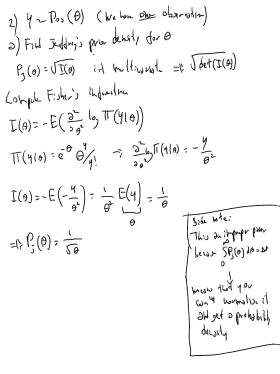 2) y ~ Pois(θ) (We have one observation)
a) Find Jeffrey's prior density for θ
P_J(θ) = √I(θ) if multivariate ⇒ √det(I(θ))
Compute Fisher's information
I(θ) = -E(∂²/∂θ² log π(y|θ))
π(y|θ) = e^-θ θ^y/y! → ∂²/∂θ² log π(y|θ) = -y/θ²
I(θ) = -E(-y/θ²) = 1/θ² E(y) = 1/θ
θ
⇒ P_J(θ) = 1/√θ
Side note:
This an improper prior
because ∫₀^∞ P_J(θ) dθ = ∞
↓
means that you
can't normalize it
and get a probability
density